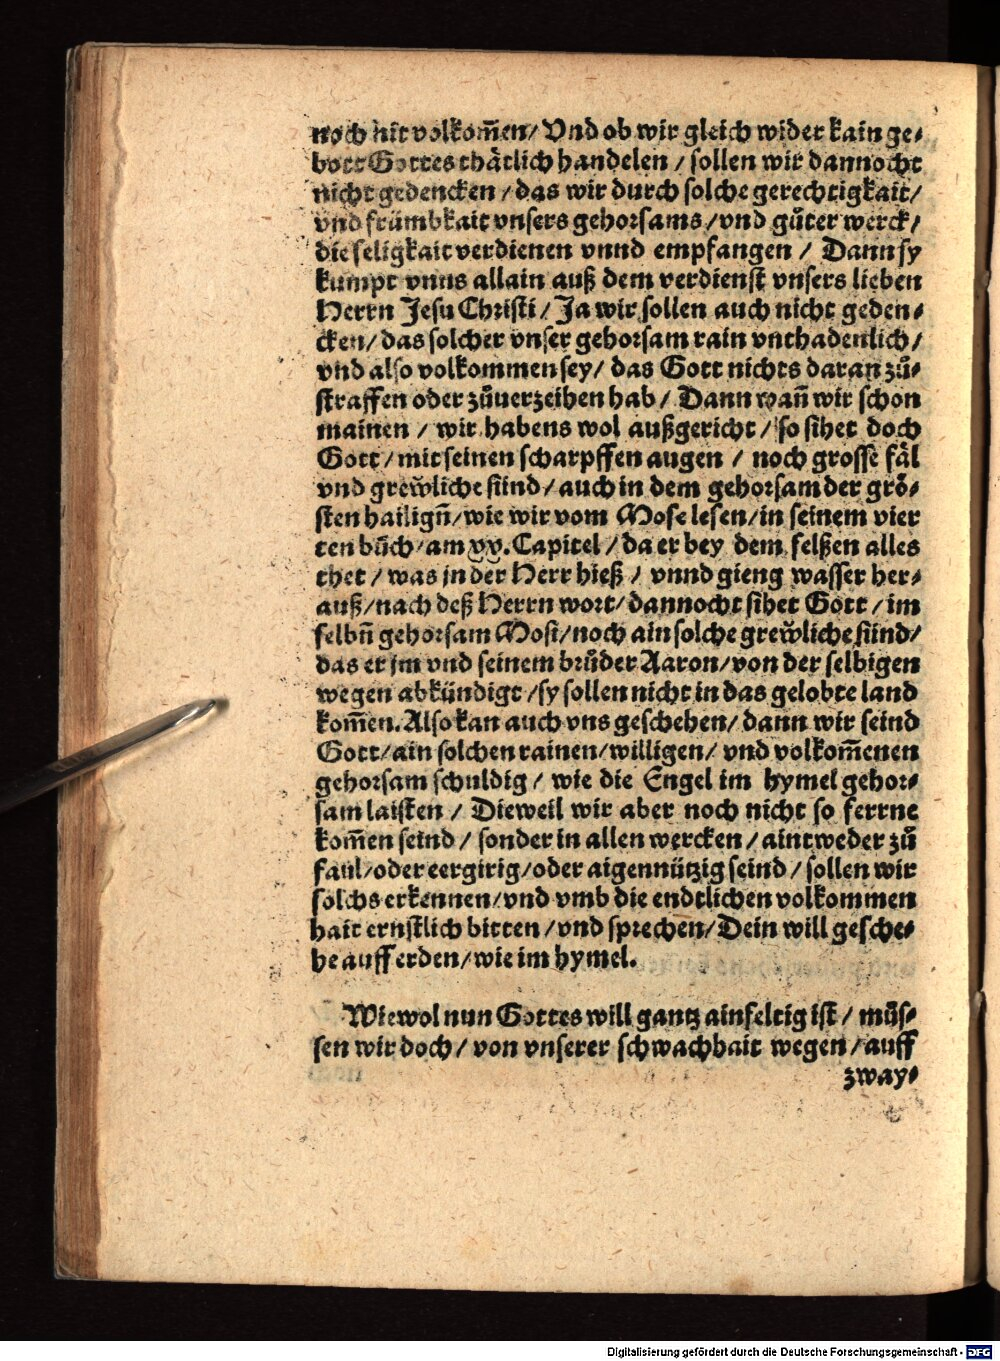 noch nit volkom̄en/ Vnd ob wir gleich wider kain ge⸗
bott Gottes thåtlich handelen / sollen wir dannocht
nicht gedencken / das wir durch solche gerechtigkait/
vnd frümbkait vnsers gehorsams /vnd gůter werck/
die seligkait verdienen vnnd empfangen / Dann sy
kumpt vnns allain auß dem verdienst vnsers lieben
Herrn Jesu Christi / Ja wir sollen auch nicht geden⸗
cken/ das solcher vnser gehorsam rain vnthadenlich/
vnd also volkommen sey/ das Gott nichts daran zů⸗
straffen oder zůuerzeihen hab / Dann wan̄ wir schon
mainen / wir habens wol außgericht / so sihet doch
Gott / mit seinen scharpffen augen / noch grosse fål
vnd grewliche sünd/ auch in dem gehorsam der grö⸗
sten hailign̄/ wie wir vom Mose lesen/ in seinem vier
ten bůch/ am xx. Capitel / da er bey dem felßen alles
thet / was jn der Herr hieß / vnnd gieng wasser her⸗
auß/ nach deß Herrn wort/ dannocht sihet Gott / im
selbn̄ gehorsam Mosi/ noch ain solche grewliche sünd/
das er jm vnd seinem brůder Aaron/ von der selbigen
wegen abkündigt / sy sollen nicht in das gelobte land
kom̄en. Also kan auch vns geschehen/ dann wir seind
Gott/ ain solchen rainen/ willigen/ vnd volkom̄enen
gehorsam schuldig / wie die Engel im hymel gehor⸗
sam laisten / Dieweil wir aber noch nicht so ferrne
kom̄en seind / sonder in allen wercken / aintweder zů
faul/ oder eergirig/ oder aigennützig seind / sollen wir
solchs erkennen/ vnd vmb die endtlichen volkommen
hait ernstlich bitten / vnd sprechen/ Dein will gesche⸗
he auff erden/ wie im hymel.
Wiewol nun Gottes will gantz ainfeltig ist / müs⸗
sen wir doch / von vnserer schwachhait wegen / auff
zway⸗
Digitalisierung gefördert durch die Deutsche Forschungsgemeinschaft - DFG